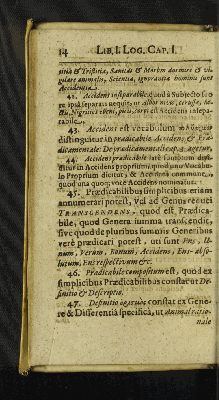 14 LIB. I. LOG. CAP. I.
titia & Tristitia, Sanitas & Morbus dormire & vi-
gilare animalis, Scientia, ignorantia hominis sunt
Accidentia.
42. Accidens inseparabile, quod à Subjecto suo
re ipsâ separari nequit,
Nigrities
rabile.
43. Accidens est vocabulum
distinguitur in prædicabile Accidens, & præ-
dicamentale: De prædicamentali cap. 2. agetur.
44. Accidens prædicabile latè sumptum
in Accidens proprium, unico
lo Proprium dicitur, & Accidens commune,
quod una quoq; voce Accidens nominatur.
45. Prædicabilibus simplicibus etiam
annumerari potest, vel ad Genus reduci
TRANSCENDENS, quod est, Prædica-
bile, quod Genera summa transcendit,
sive quod de pluribus summis Generibus
verè prædicari potest, uti sunt Ens, U-
num, Verum, Bonum, Accidens, Ens absо-
lutum, Ens respectivum &c.
46. Prædicabile compositum est, quod ex
simplicibus Prædicabilibus constat ut De-
finitio & Descriptio.
47. Definitio constat ex Gene-
re & Differentiâ specificâ, ut Animal ratio-
nale